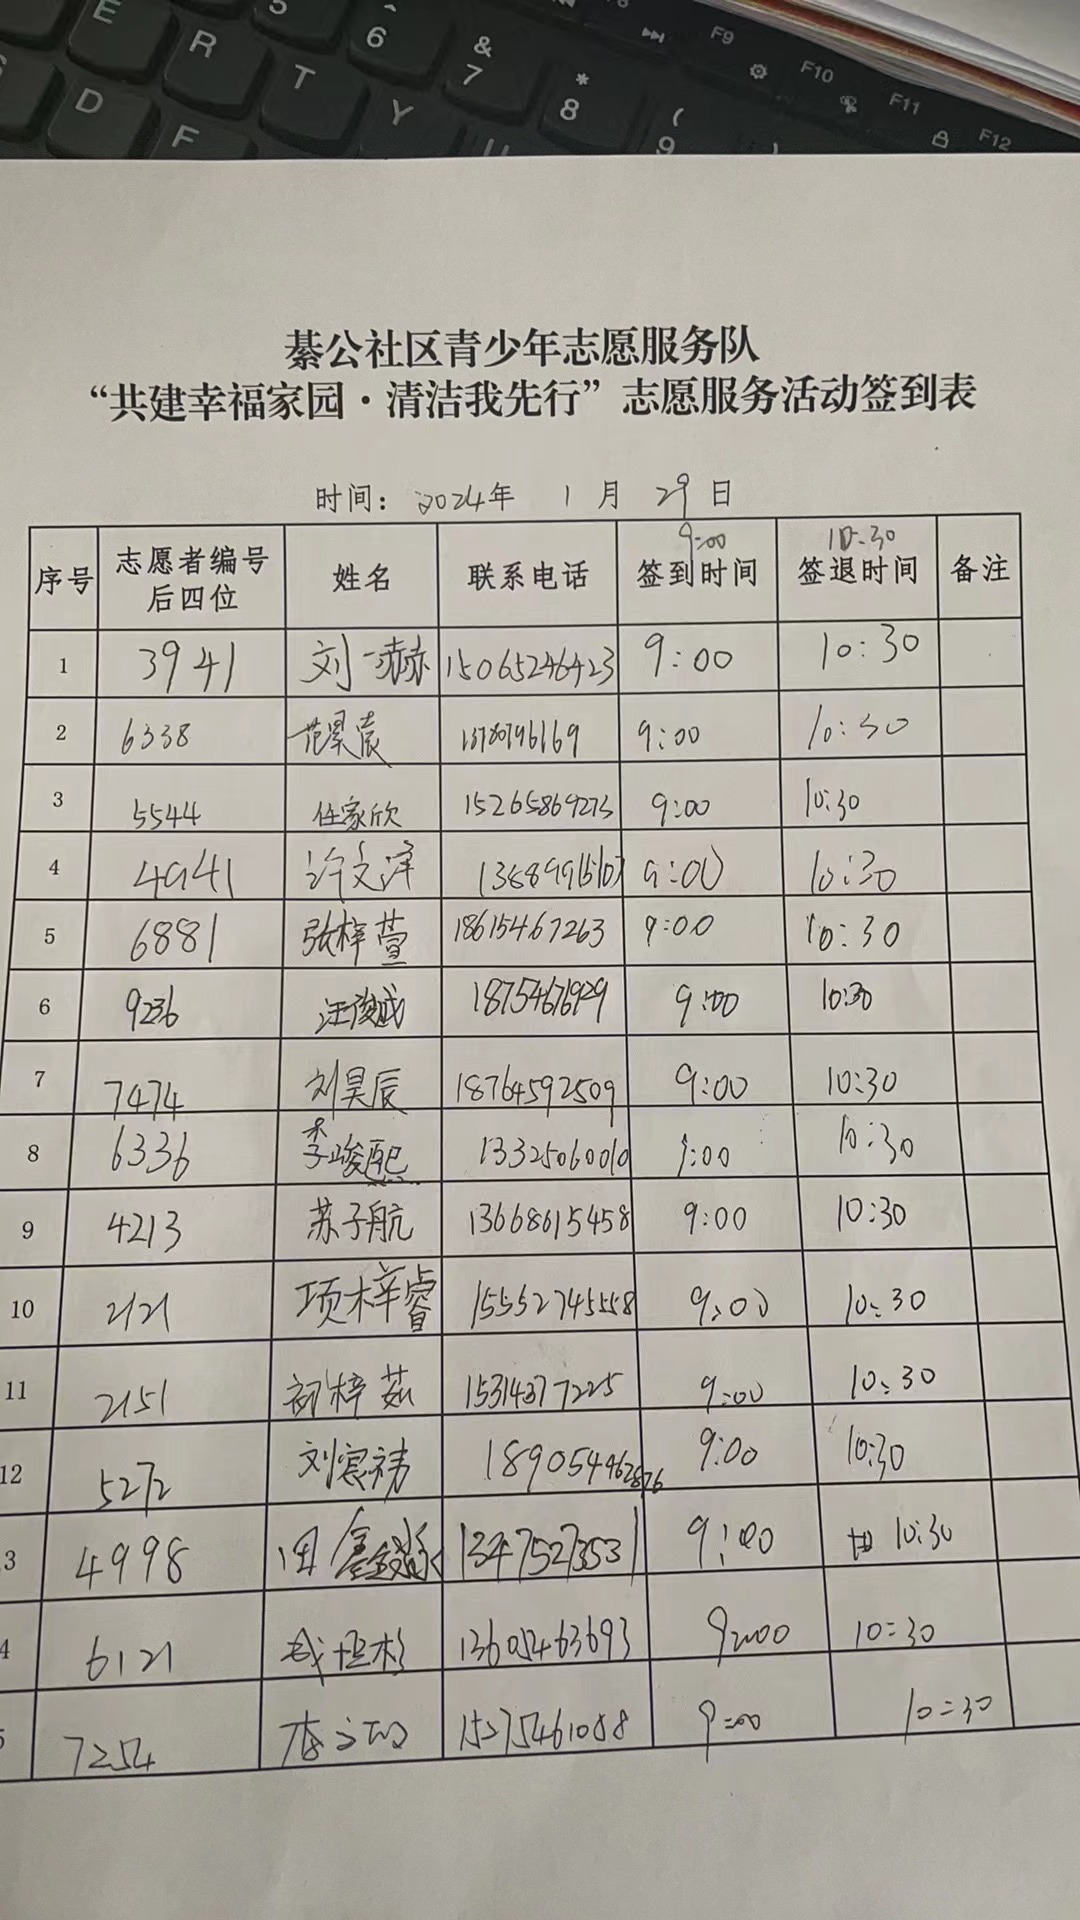 E R T Y U D F 6 & 7 * 8 ( 9 F9 F10 F11 F12
綦公社区青少年志愿服务队
“共建幸福家园·清洁我先行”志愿服务活动签到表
时间: 2024年 1 月 29 日
9:00 10:30
序号 志愿者编号后四位 姓名 联系电话 签到时间 签退时间 备注
1 3941 刘一赫 15065246423 9:00 10:30
2 6338 范昊宸 9:00 10:30
3 5544 任家欣 15265869273 9:00 10:30
4 4941 许文泽 9:00 10:30
5 6881 张梓萱 18615467263 9:00 10:30
6 9236 汪俊成 18754676929 9:00 10:30
7 7474 刘昊辰 18764592509 9:00 10:30
8 6336 李峻熙 13325060010 9:00 10:30
9 4213 苏子航 13668615458 9:00 10:30
10 2121 项梓睿 15552745558 9:00 10:30
11 2151 梓茹 15314377225 9:00 10:30
12 5272 刘宸祎 18905462876 9:00 10:30
3 4998 13475273531 9:00 10:30
4 6121 13605463693 9:00 10:30
5 7254 15275461088 9:00 10:30